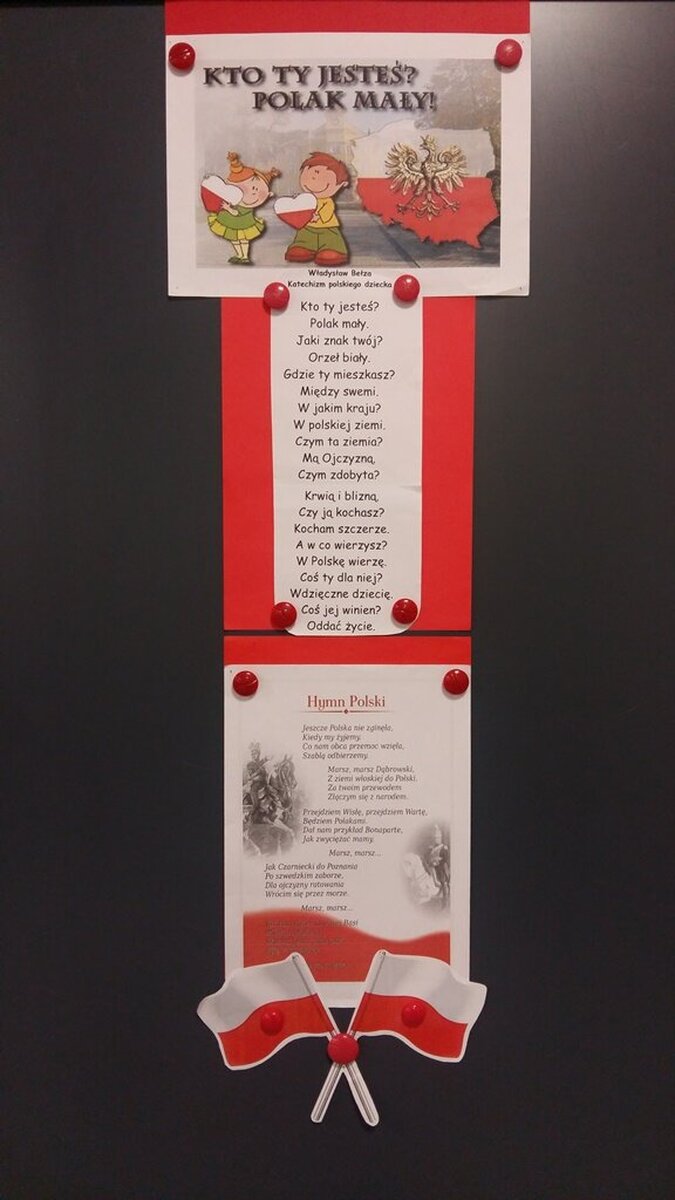 KTO TY JESTEŚ?
POLAK MAŁY!
Władysław Bełza
Katechizm polskiego dziecka
Kto ty jesteś?
Polak mały.
Jaki znak twój?
Orzeł biały.
Gdzie ty mieszkasz?
Między swemi.
W jakim kraju?
W polskiej ziemi.
Czym ta ziemia?
Mą Ojczyzną,
Czym zdobyta?
Krwią i blizną,
Czy ją kochasz?
Kocham szczerze.
A w co wierzysz?
W Polskę wierzę.
Coś ty dla niej?
Wdzięczne dziecię.
Coś jej winien?
Oddać życie.
Hymn Polski
Jeszcze Polska nie zginęła,
Kiedy my żyjemy.
Co nam obca przemoc wzięła,
Szablą odbierzemy.
Marsz, marsz Dąbrowski,
Z ziemi włoskiej do Polski.
Za twoim przewodem
Złączym się z narodem.
Przejdziem Wisłę, przejdziem Wartę,
Będziem Polakami.
Dał nam przykład Bonaparte,
Jak zwyciężać mamy.
Marsz, marsz...
Jak Czarniecki do Poznania
Po szwedzkim zaborze,
Dla ojczyzny ratowania
Wrócim się przez morze.
Marsz, marsz...
Basi